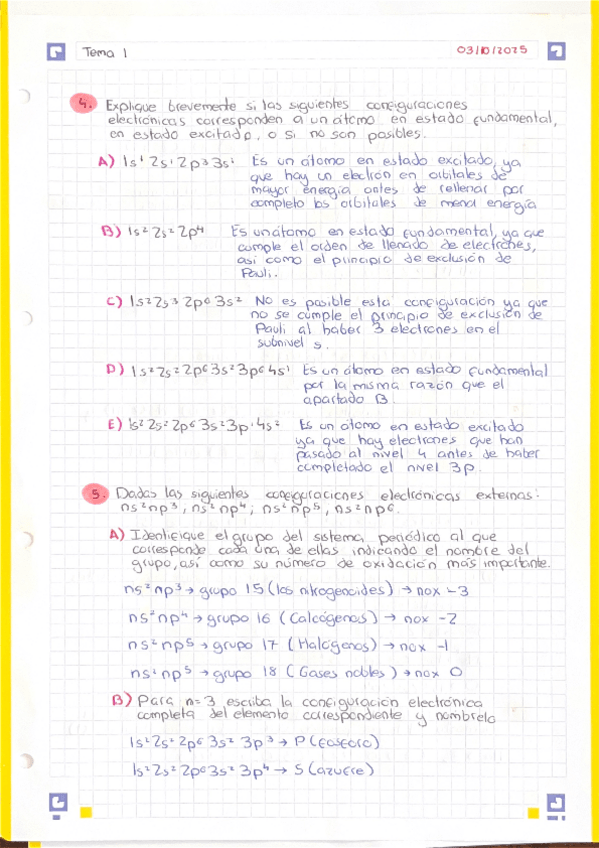 Tema 1
03/10/2025
4. Explique brevemente si las siguientes configuraciones
electrónicas corresponden a un átomo en estado fundamental,
en estado excitado, o si no son posibles.
A) 1s¹ 2s¹ 2p³ 3s¹ Es un átomo en estado excitado, ya
que hay un electrón en orbitales de
mayor energía antes de rellenar por
completo los orbitales de menor energía
B) 1s² 2s² 2p⁴ Es un átomo en estado fundamental, ya que
cumple el orden de llenado de electrones,
así como el principio de exclusión de
Pauli.
C) 1s² 2s³ 2p⁶ 3s² No es posible esta configuración ya que
no se cumple el principio de exclusión de
Pauli al haber 3 electrones en el
subnivel s.
D) 1s² 2s² 2p⁶ 3s² 3p⁶ 4s¹ Es un átomo en estado fundamental
por la misma razón que el
apartado B.
E) 1s² 2s² 2p⁶ 3s² 3p¹ 4s² Es un átomo en estado excitado
ya que hay electrones que han
pasado al nivel 4 antes de haber
completado el nivel 3p.
5. Dadas las siguientes configuraciones electrónicas externas:
ns² np³, ns² np⁴; ns² np⁵, ns² np⁶.
A) Identifique el grupo del sistema periódico al que
corresponde cada una de ellas indicando el nombre del
grupo, así como su número de oxidación más importante.
ns² np³ → grupo 15 (los nitrogenoides) → nox -3
ns² np⁴ → grupo 16 (Calcógenos) → nox -2
ns² np⁵ → grupo 17 (Halógenos) → nox -1
ns² np⁵ → grupo 18 (Gases nobles) → nox 0
B) Para n=3 escriba la configuración electrónica
completa del elemento correspondiente y nombrelo
1s² 2s² 2p⁶ 3s² 3p³ → P (Fósforo)
1s² 2s² 2p⁶ 3s² 3p⁴ → S (azufre)